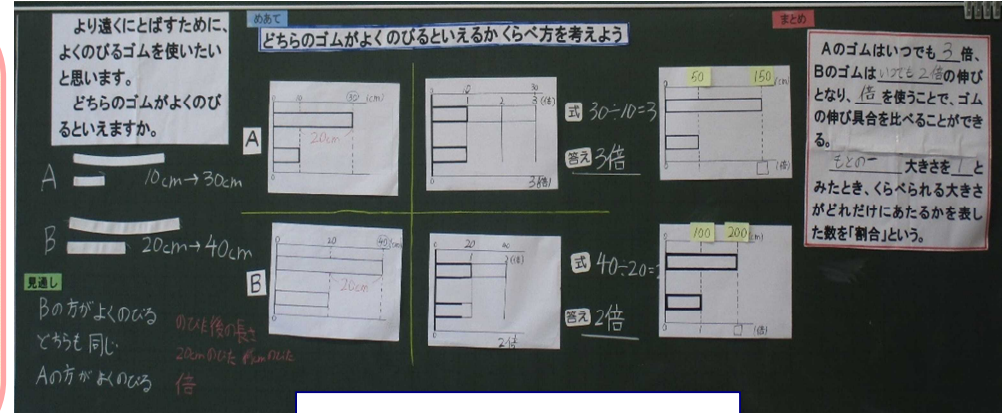 より遠くにとばすために、
よくのびるゴムを使いたい
と思います。
どちらのゴムがよくのび
るといえますか。
A 10cm→30cm
B 20cm→40cm
見通し
Bの方がよくのびる
どちらも同じ
Aの方がよくのびる
のびた後の長さ
倍
めあて
どちらのゴムがよくのびるといえるか くらべ方を考えよう
A
0 10 30 (cm)
20cm
0
0 10 30
1 2 3 (倍)
0 3(倍)
式 30÷10=3
答え 3倍
50 150 (cm)
0 1 □ (倍)
B
0 20 40 (cm)
20cm
0
0 20 40
1 2 (倍)
0 2倍
式 40÷20=
答え 2倍
100 200 (cm)
0 1 □ (倍)
まとめ
Aのゴムはいつでも 3 倍、
Bのゴムは いつでも2倍 の伸び
となり、 倍 を使うことで、ゴム
の伸び具合を比べることができ
る。
もとの 大きさを 1 と
みたとき、くらべられる大きさ
がどれだけにあたるかを表し
た数を「割合」という。